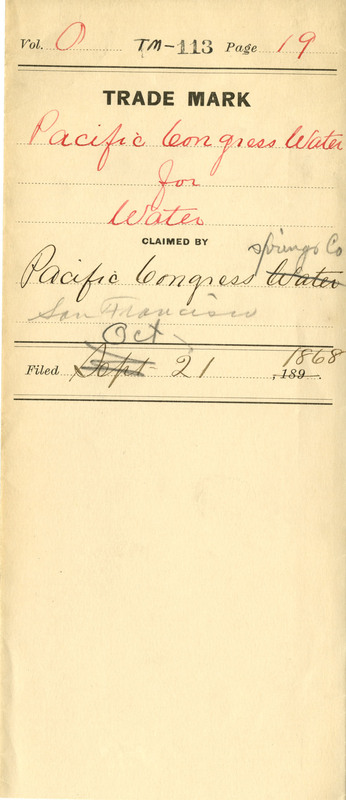 Vol. O TM-113 Page 19
TRADE MARK
Pacific Congress Water
for
Water
CLAIMED BY
Springs Co
Pacific Congress Water
San Francisco
Oct
Filed Sept 21 1868
, 189